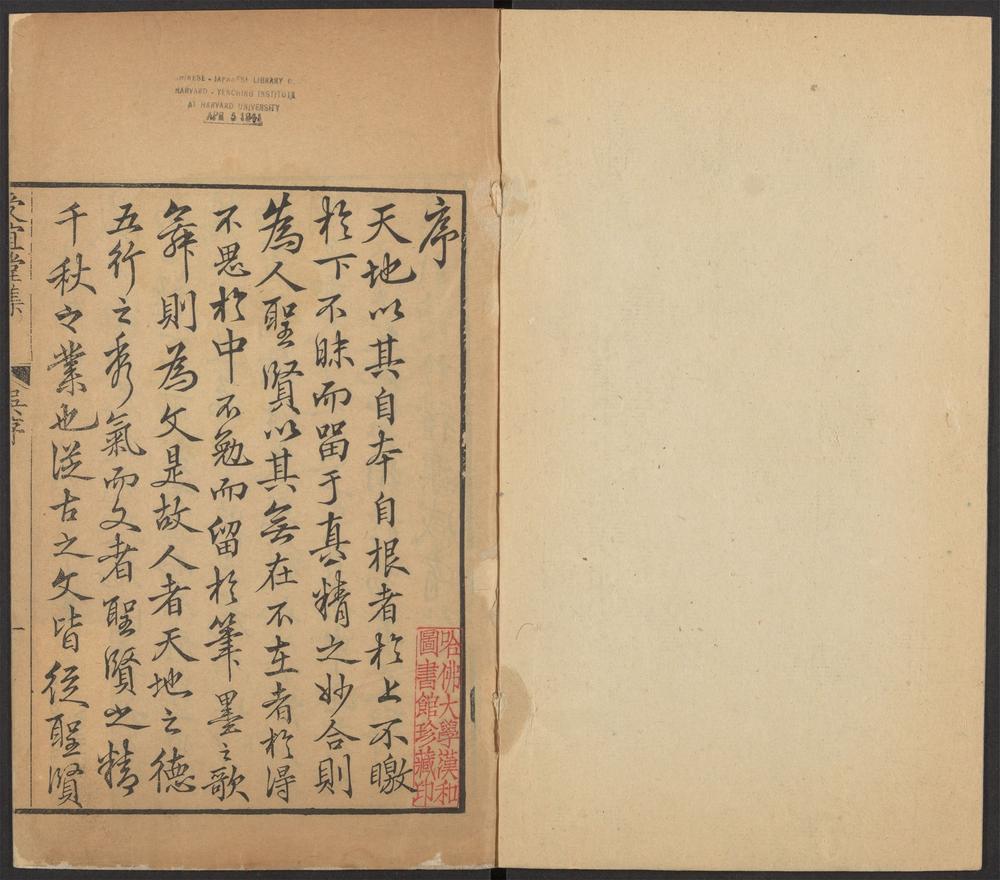 CHINESE - JAPANESE LIBRARY O
HARVARD - YENCHING INSTITUTE
AT HARVARD UNIVERSITY
APR 5 1941
序
哈佛大學漢和
圖書館珍藏印
天地以其自本自根者於上不曒
於下不昧而畱于真精之妙合則
為人聖賢以其無在不在者於得
不思於中不勉而留於筆墨之歌
舞則為文是故人者天地之德
五行之秀氣而文者聖賢之精
千秋之業也從古之文皆從聖賢
受宜堂集 吳序 一